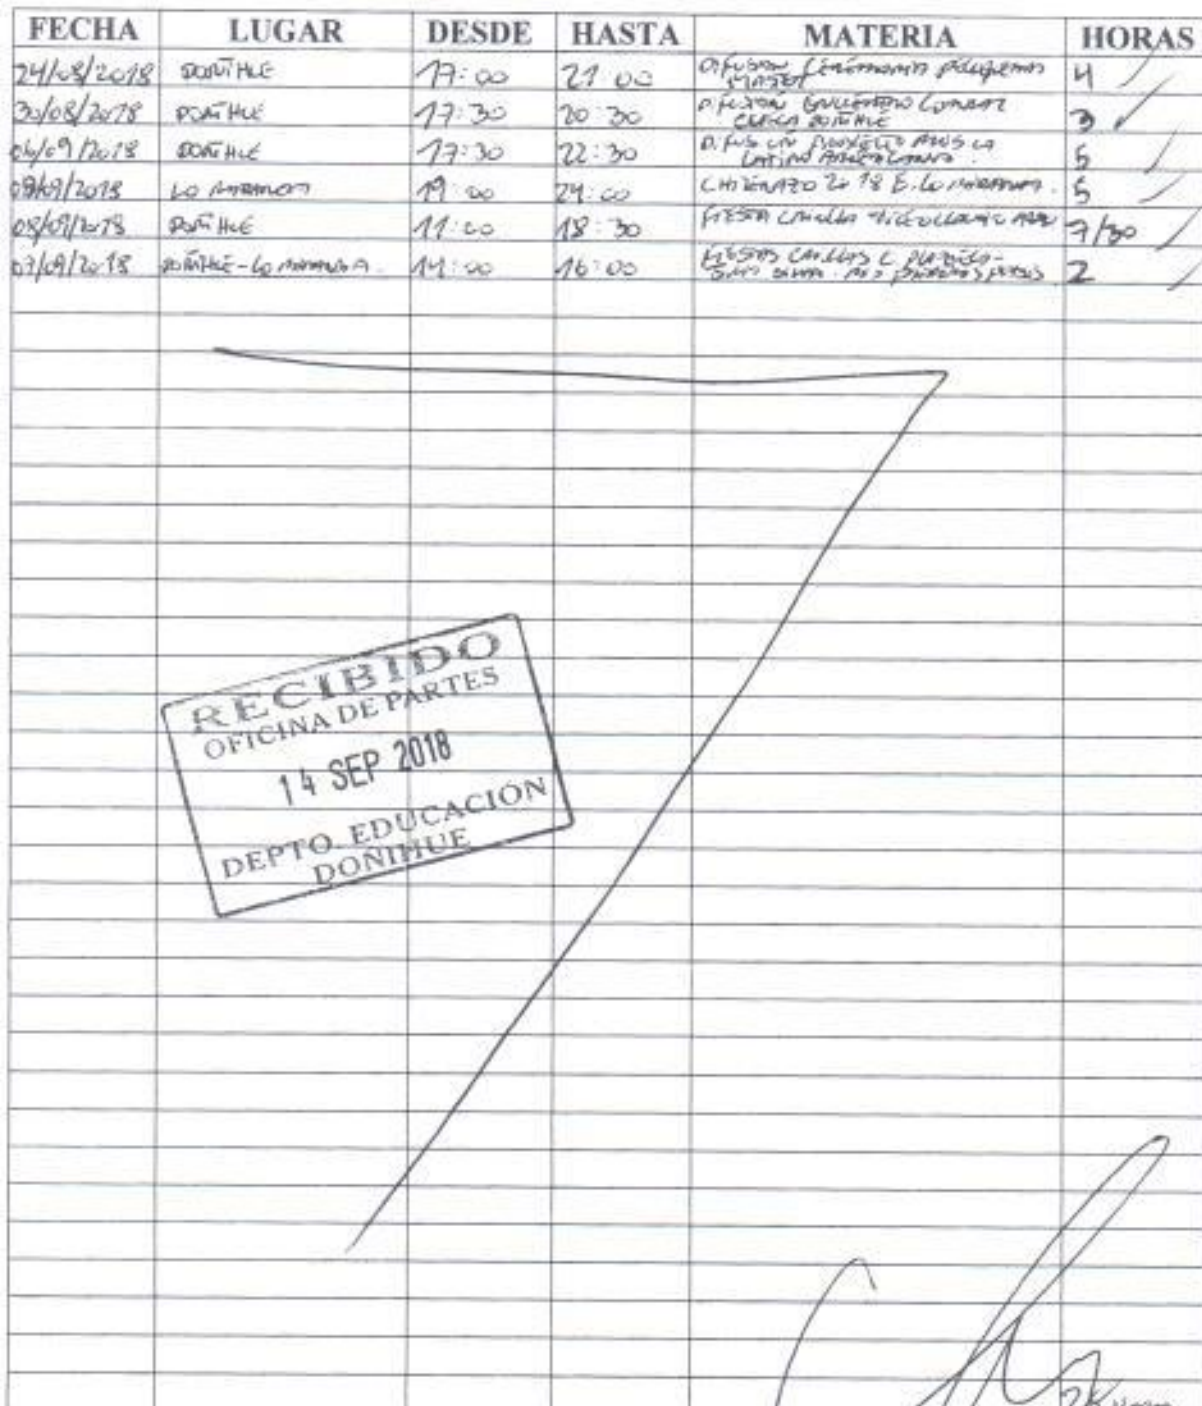 FECHA LUGAR DESDE HASTA MATERIA HORAS
24/08/2018 DOÑIHUE 17:00 21:00 DIFUSION CEREMONIA 4
30/08/2018 DOÑIHUE 17:30 20:30 DIFUSION ENCUENTRO COMUNAL 3
CUECA DOÑIHUE
06/09/2018 DOÑIHUE 17:30 22:30 5
LATINO AMERICANO
08/09/2018 LO MIRANDA 19:00 24:00 CHILENAZO 2018 E. LO MIRANDA. 5
08/09/2018 DOÑIHUE 11:00 18:30 FIESTA CRIOLLA 7/30
07/09/2018 DOÑIHUE-LO MIRANDA. 14:00 16:00 FIESTAS CRIOLLAS 2
RECIBIDO
OFICINA DE PARTES
14 SEP 2018
DEPTO. EDUCACIÓN
DOÑIHUE